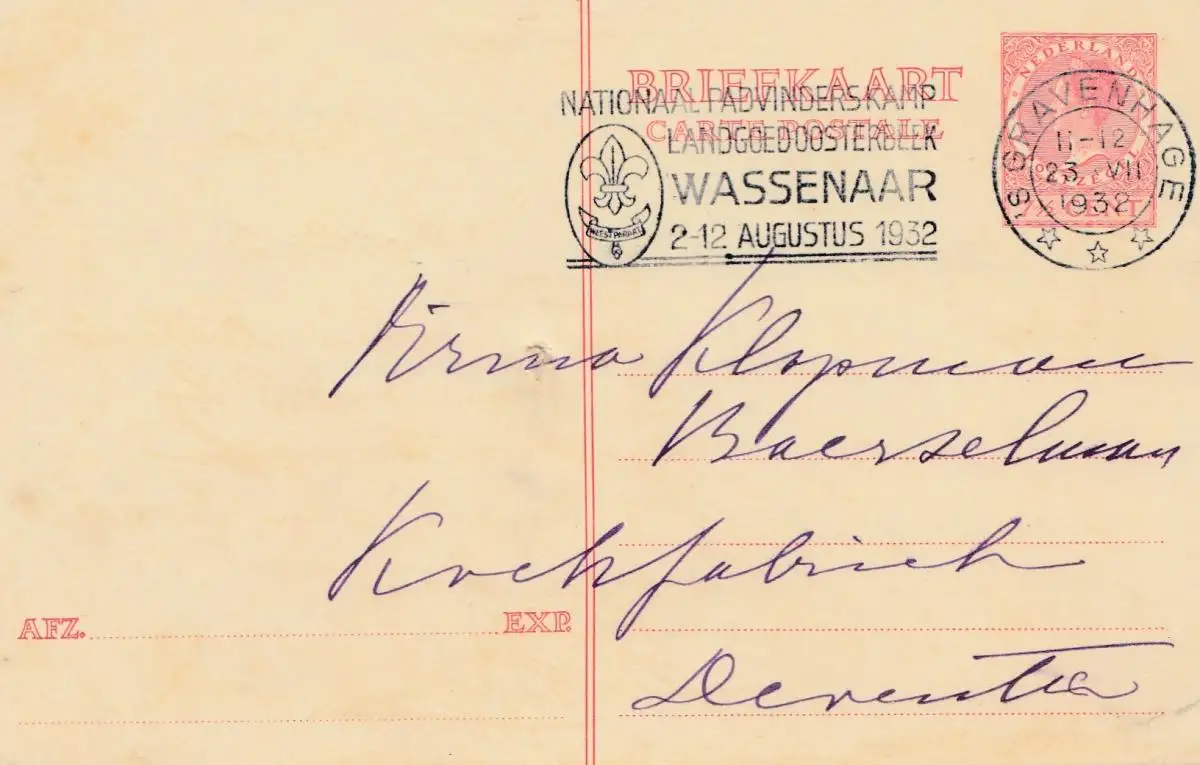 BRIEFKAART
CARTE POSTALE
NEDERLAND
7½ CENT
NATIONAAL PADVINDERSKAMP
LANDGOED OOSTERBEEK
WASSENAAR
2-12 AUGUSTUS 1932
WEEST PARAAT
'S GRAVENHAGE
11-12
23 VII
1932
Firma Klopman
Baerselman
Kochfabrich
Deventer
AFZ. EXP.